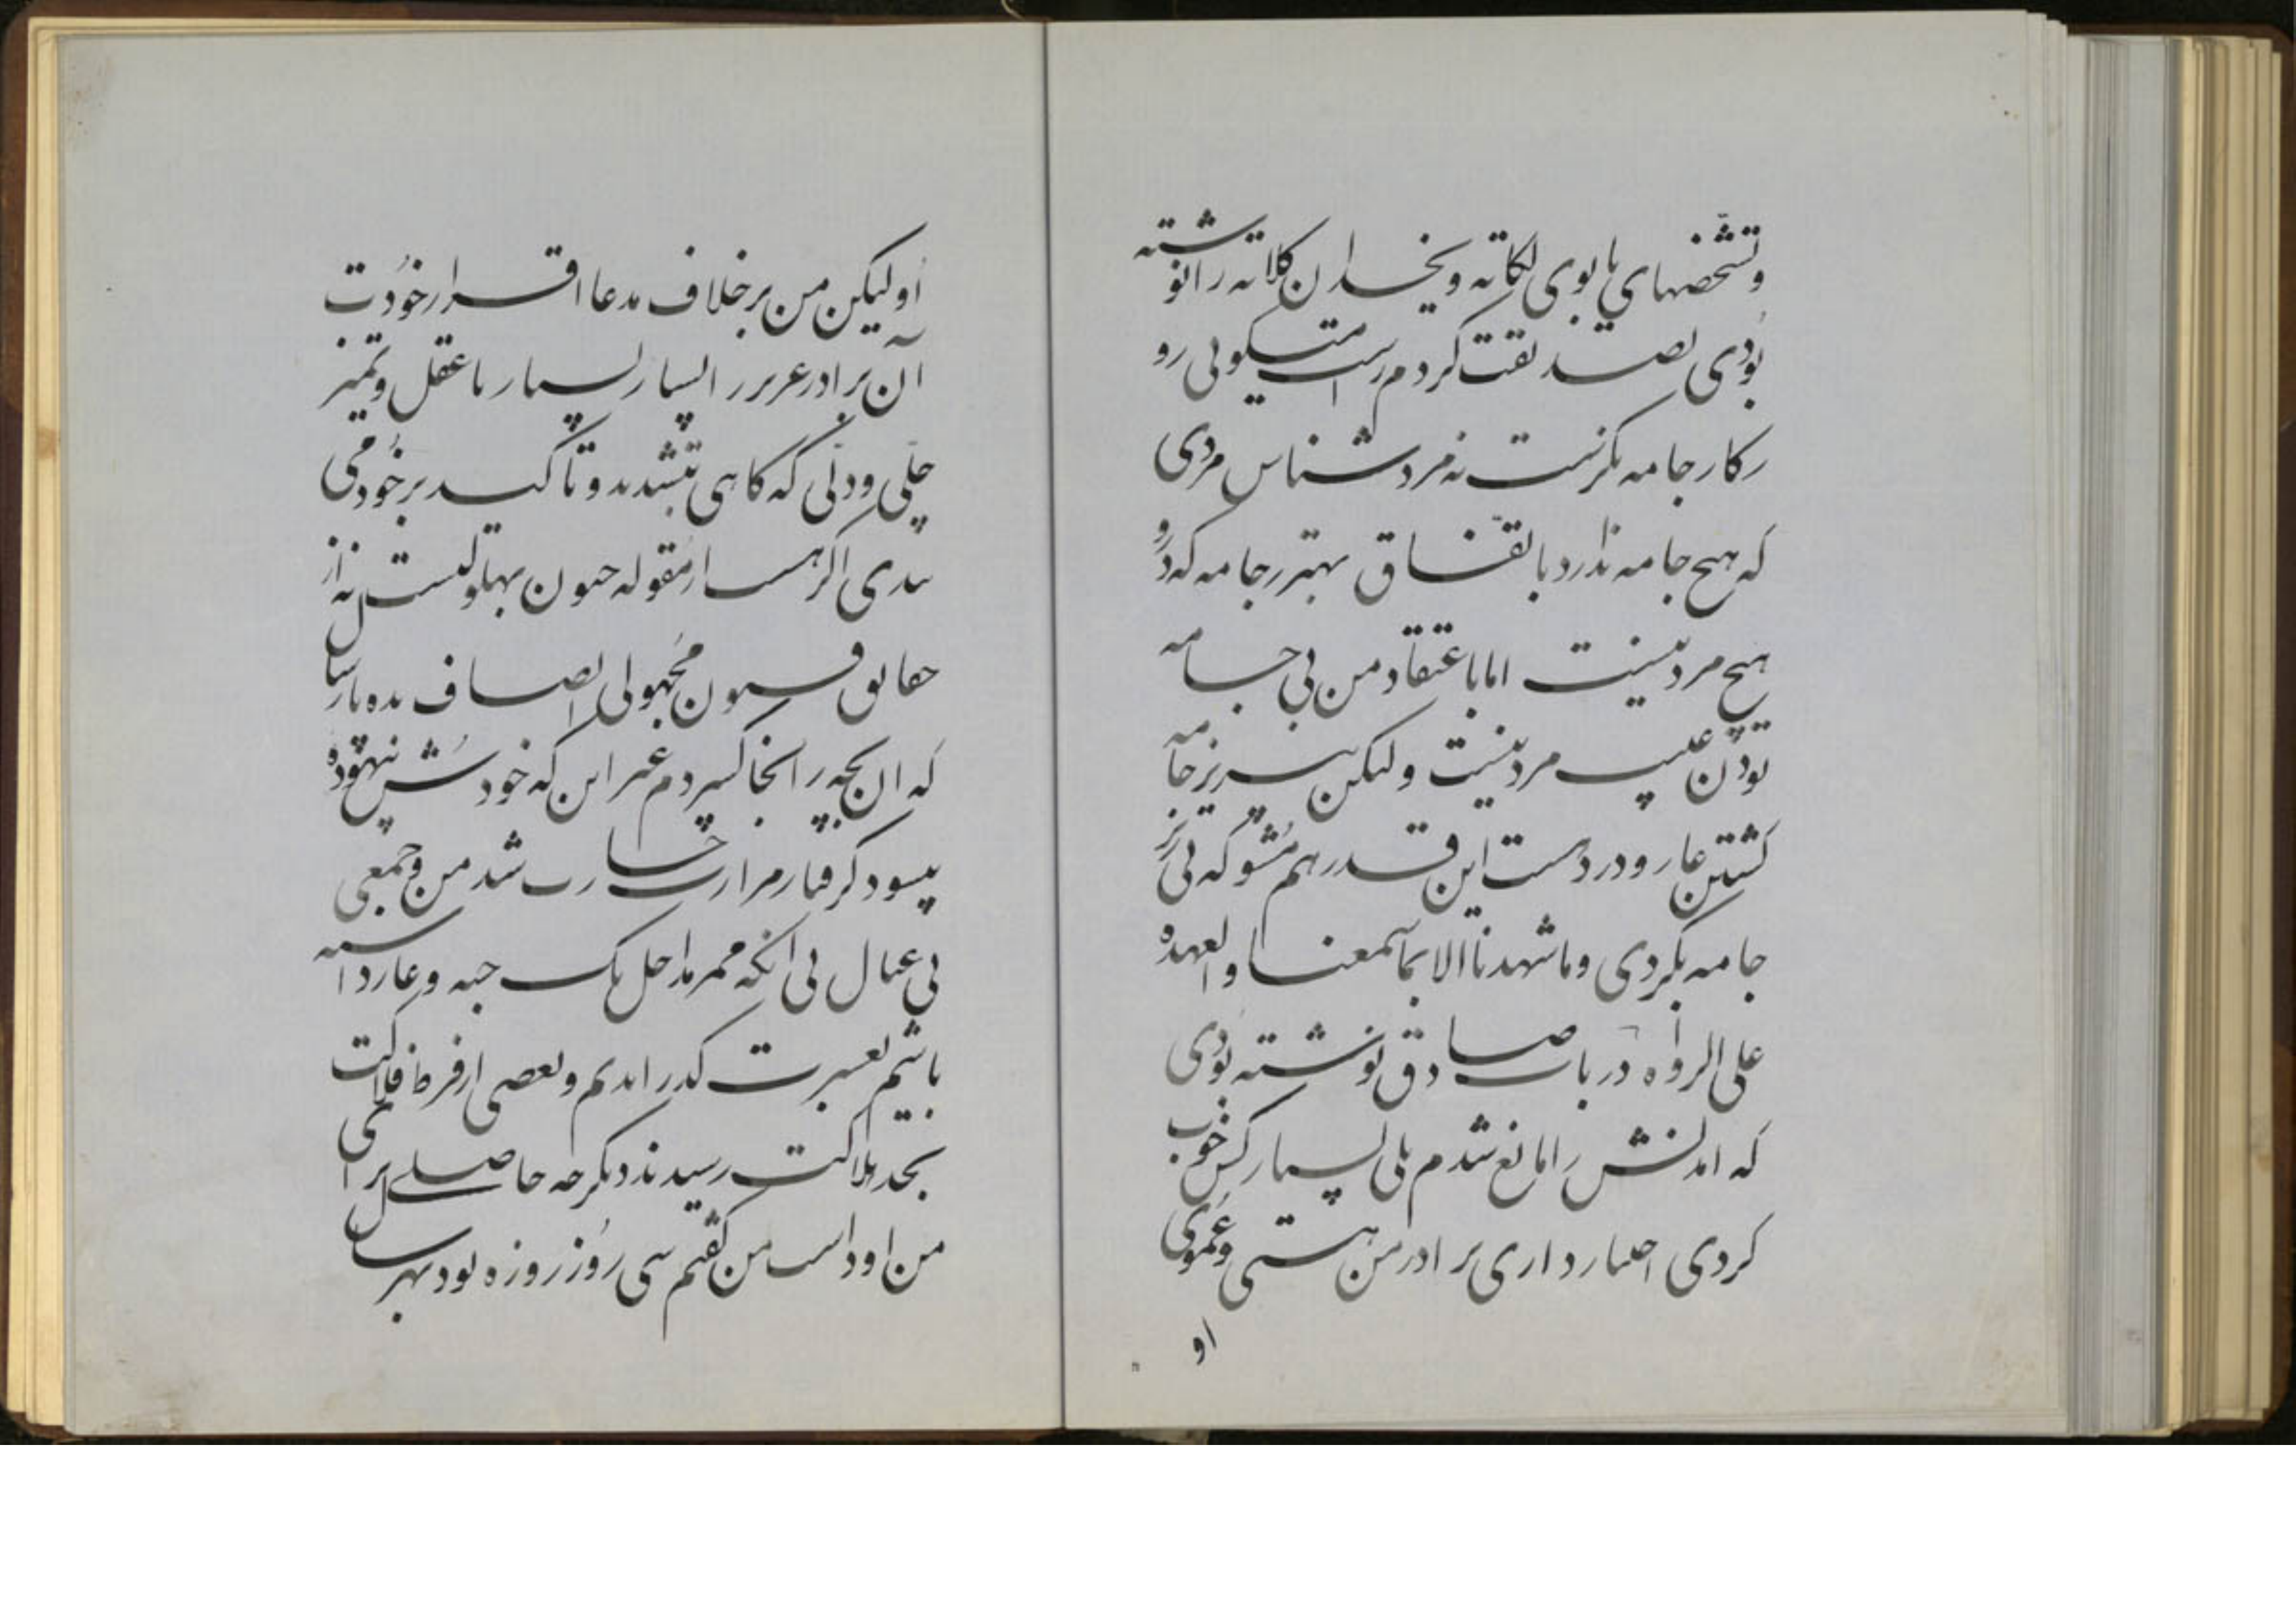 وتشخصهای یابوی لکاته و یخدان کلاته را نوشته
بودی تصدیقت کردم راست میکوئی رو
کار جامه نکرنست نه مرد شناس مردی
که هیچ جامه ندارد باتفاق بهتر ز جامه که درو
هیچ مرد نیست اما باعتقاد من بی جامه
بودن عیب مرد نیست ولیکن بی زیر جامه
کشتن عار و درد است این قدر هم مشو که بی زیر
جامه بکردی وما شهدنا الا بما سمعنا والعهده
علی الرواه در باب صادق نوشته بودی
که امدنش را مانع شدم بلی بسیار کس خوب
کردی اختیار داری برادر من هستی و عموی
او
او لیکن من بر خلاف مدعا اقرار خودت
آن برادر عزیز را بسیار بسیار با عقل و تمیز
چلی ودلی که کاهی تشدد و تاکید بر خود می
بندی اکر هست از مقوله جنون بهلولیست نه از
حقایق فنون مجهولی انصاف بده پارسال
که ان بچه را انجا سپردم غیر این که خودش بیهوده
بیسود کرفتار مرارت خسارت شد من و جمعی
بی عیال بی انکه ممر مداخل یک حبه و عار داشته
باشیم بعسرت کذراندیم و بعضی از فرط فلاکت
بحد هلاکت رسیدند دیکر چه حاصلی برای
من او داست من کفتم سی روز روزه بود بهر سال